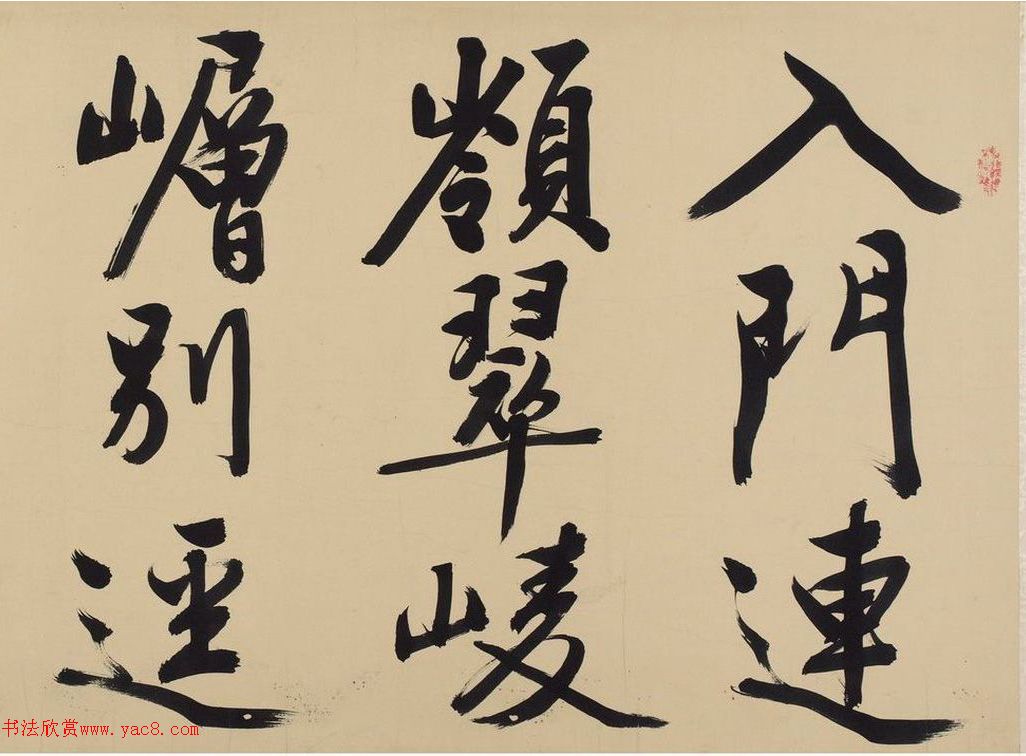 入門連
嶺翠崚
嶒別逕
书法欣赏www.yac8.com